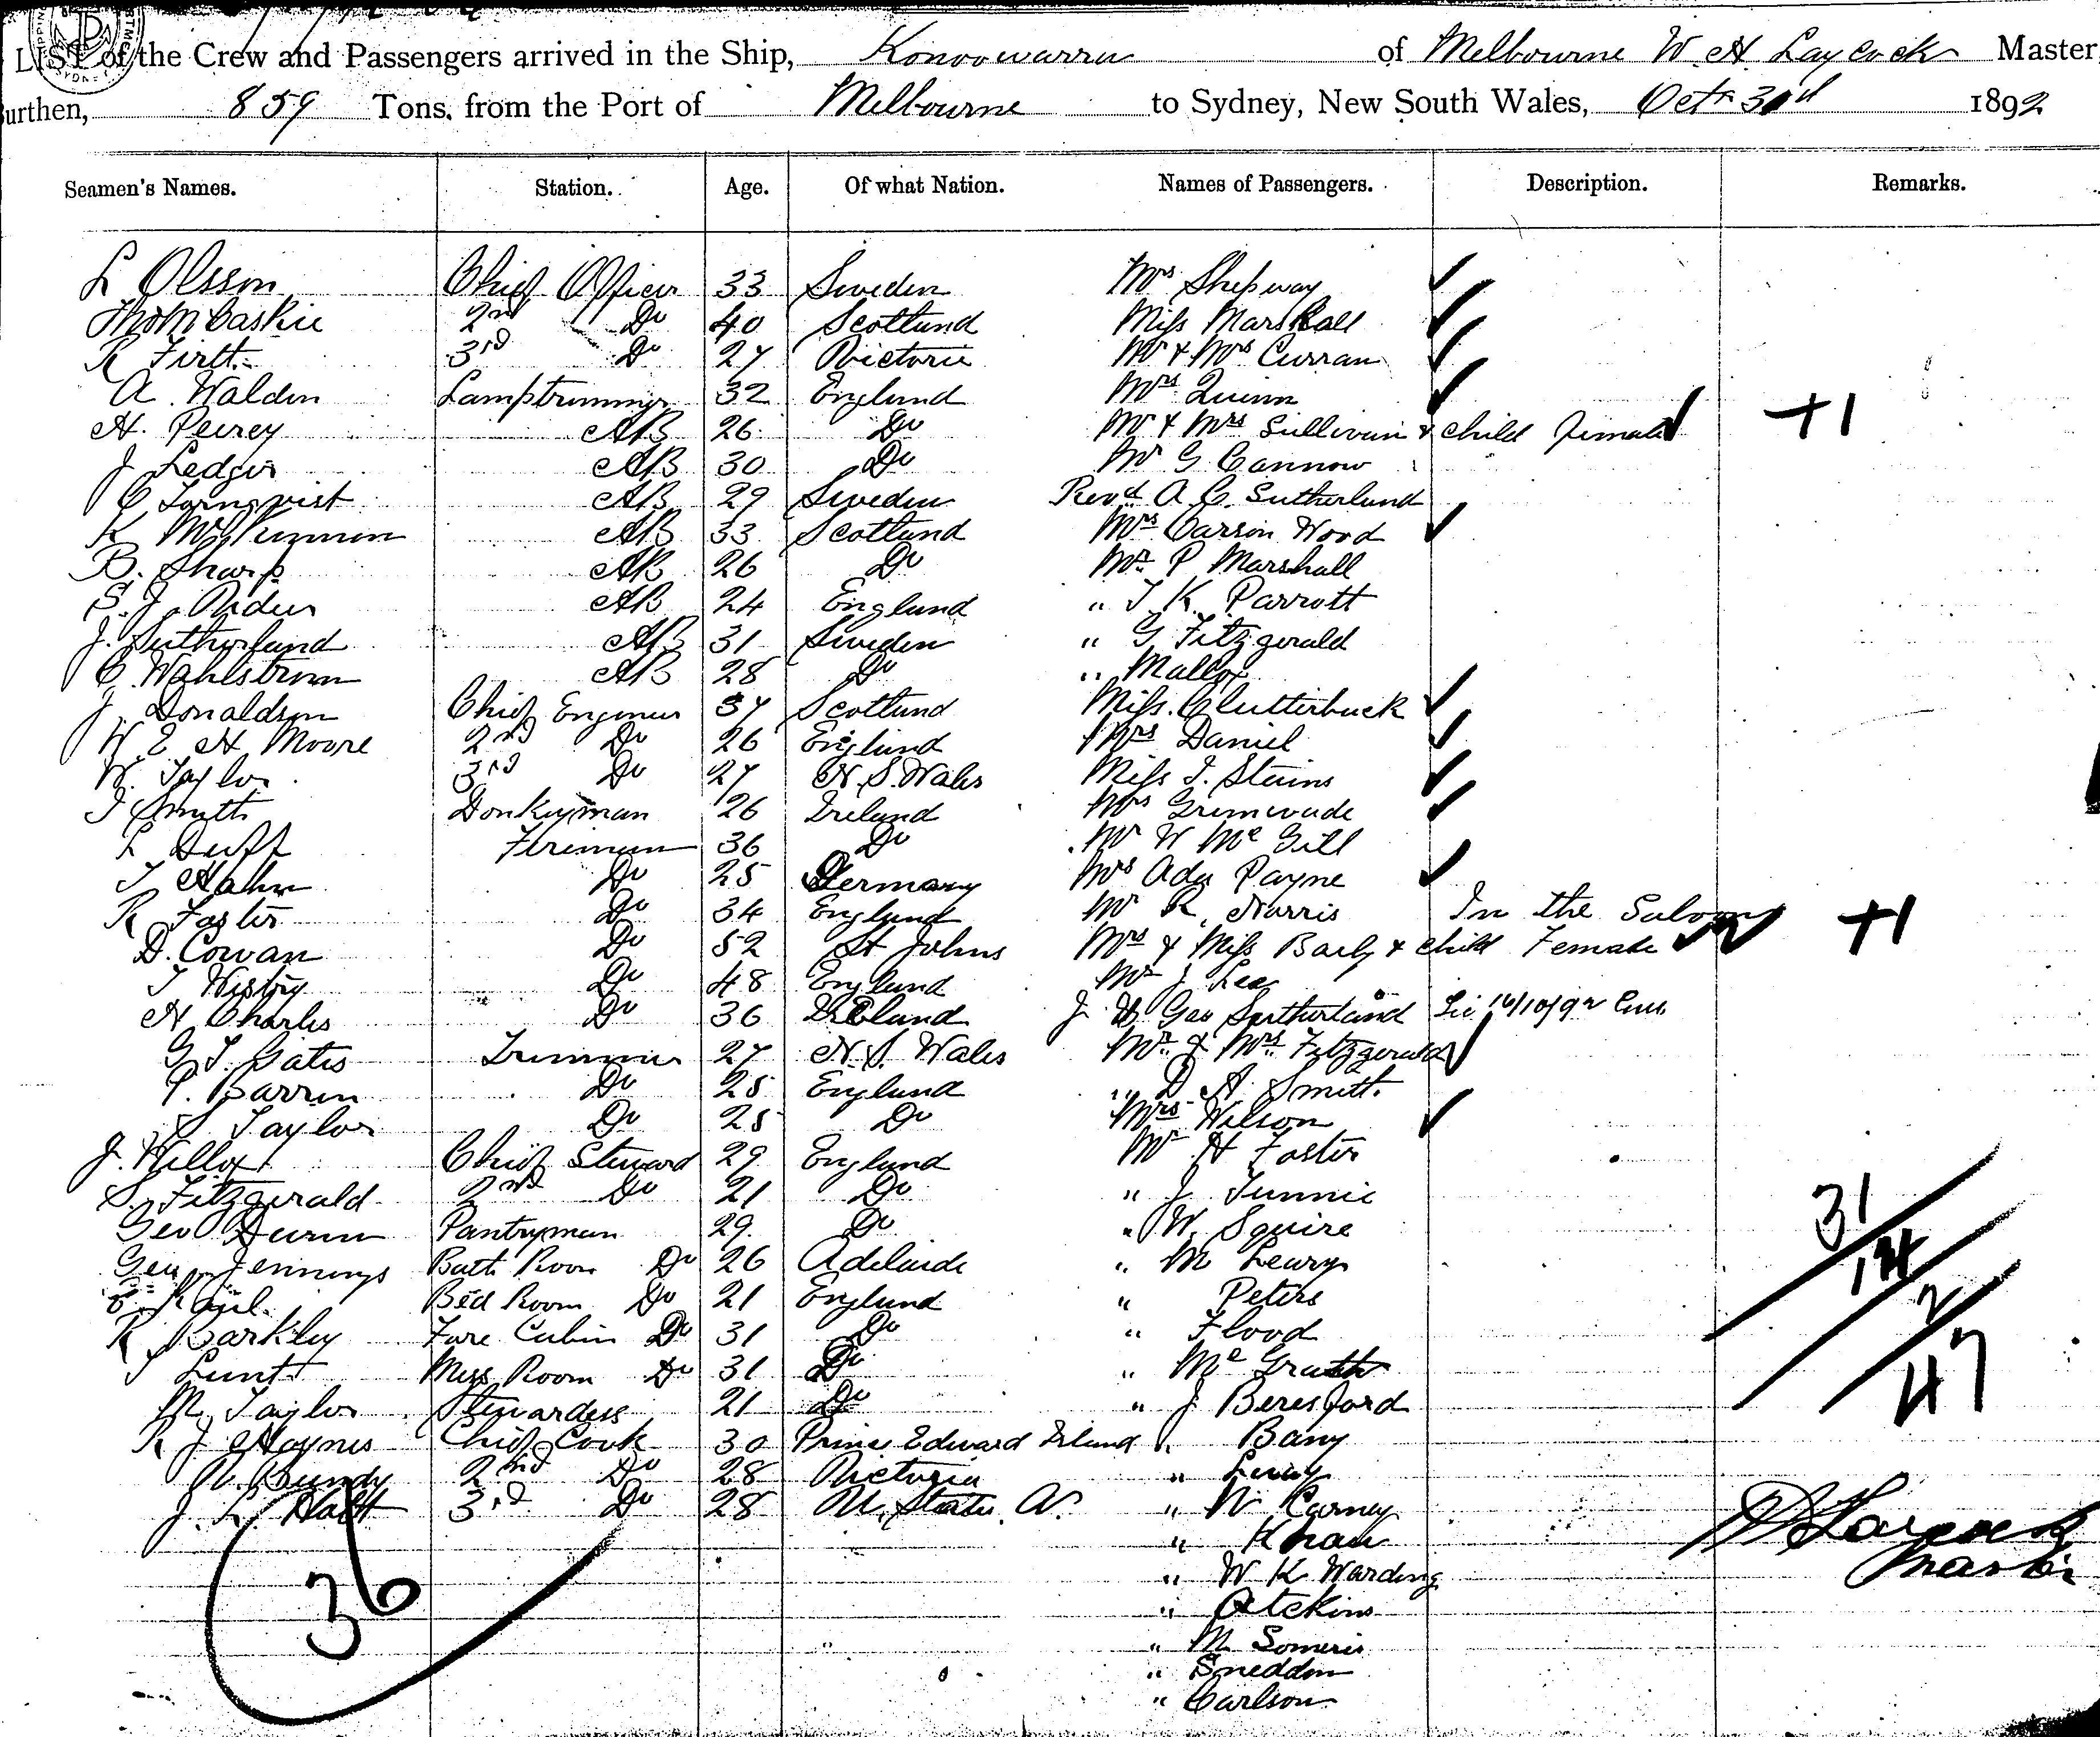 LIST of the Crew and Passengers arrived in the Ship, Konoowarra of Melbourne W. H. Laycock Master
urthen, 859 Tons, from the Port of Melbourne to Sydney, New South Wales, Octr 1892
Seamen's Names. Station. Age. Of what Nation. Names of Passengers. Description. Remarks.
L Olsson Chief Officer 33 Sweden Mrs Shepway
2nd Do 40 Scotland Miss Marshall
R Firth 3rd Do 27 Victoria Mr & Mrs Curran
A. Walden Lamptrimmer 32 England Mrs Quinn
H. Peirey AB 26 Do Mr & Mrs Sullivan & child female +1
J Ledger AB 30 Do Mr G Cannow
C Tornqvist AB 29 Sweden Revd A C. Sutherland
K McKinnon AB 33 Scotland Mrs Carson Wood
B. Sharp AB 26 Do Mr P Marshall
S. J. AB 24 England " T K. Parrott
J. Sutherland AB 31 Sweden " G Fitzgerald
C. Wahlstrom AB 28 Do " Malloy
J Donaldson Chief Engineer 37 Scotland Miss. Clutterbuck
W E H Moore 2nd Do 26 England Mrs Daniel
W. Taylor 3rd Do 27 N. S. Wales Miss I. Stains
J Smyth Donkeyman 26 Ireland Mrs Grimwade
L Duff Fireman 36 Do Mr W McGill
J Hahn Do 25 Germany Mrs Ada Payne
R Foster Do 34 England Mr R. Norris In the Saloon
D. Cowan Do 52 St Johns Mrs & Miss Baily & child Female +1
T Do 48 England Mr J Lee
H Charles Do 36 Ireland J Geo Sutherland
G T. Gates Trimmer 27 N. S. Wales Mr & Mrs Fitzgerald
P. Barren Do 25 England " D A Smith
S Taylor Do 25 Do Mrs Wilson
J. Killoy Chief Steward 29 England Mr H Foster
S. Fitzgerald 2nd Do 21 Do " J Tunnie
Geo Pantryman 29 Do " W. Squire
Geo Jennings Bath Room Do 26 Adelaide " M Leary
Bed Room Do 21 England " Peters
R Barkley Fore Cabin Do 31 Do " Flood
T Lunt Mess Room Do 31 Do " McGrath
M. Taylor Stewardess 21 Do " J Beresford
R J Haynes Chief Cook 30 Prince Edward Island " Bany
2nd Do 28 Victoria "
J. L. Holt 3rd Do 28 U. States A. " W Carney
"
" W K Warding
" Atckins
" M Someris
" Sneddon
" Carlson
36
31
2
47
Laycock
Master